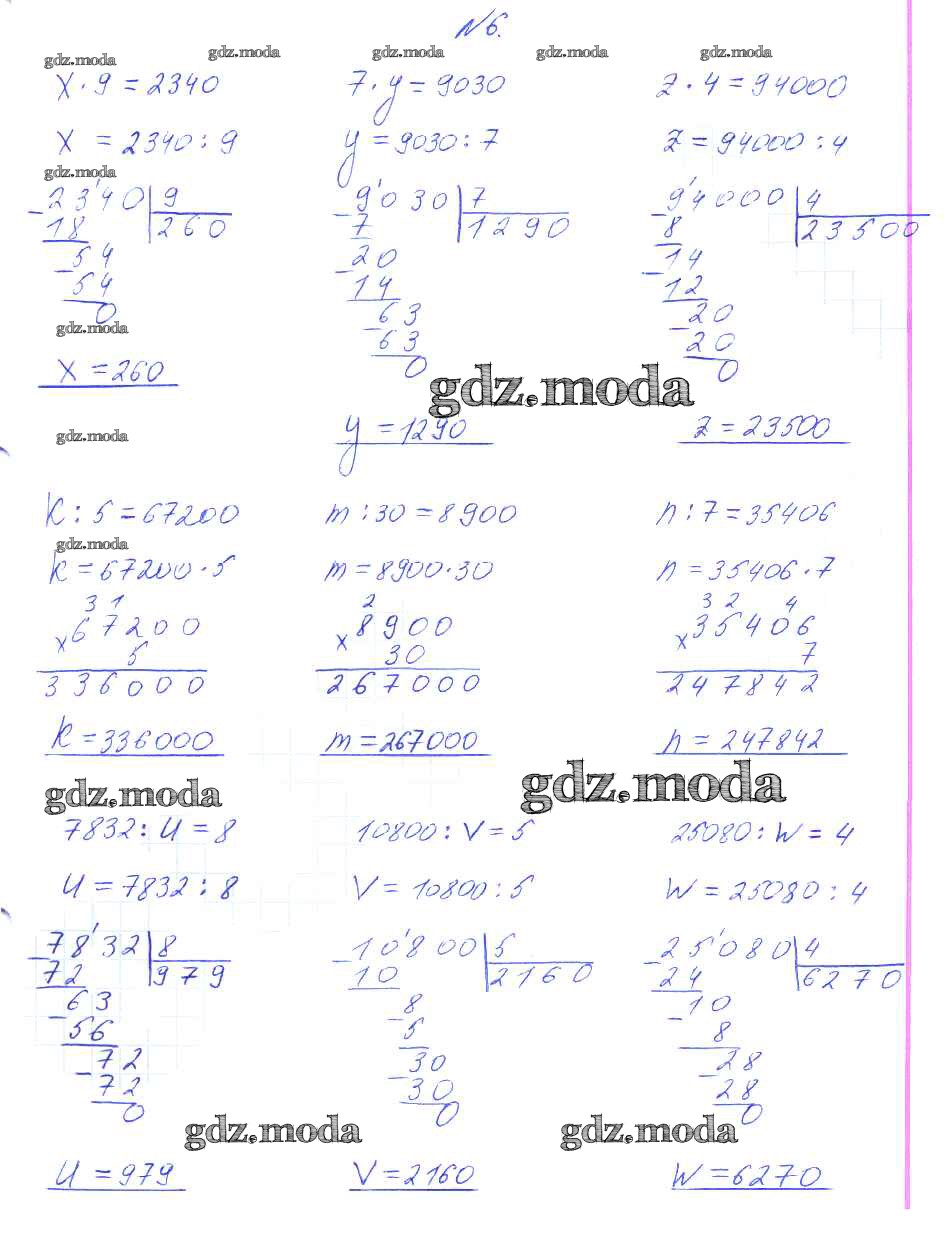 №6.
gdz.moda gdz.moda gdz.moda gdz.moda gdz.moda
x · 9 = 2340   7 · y = 9030   z · 4 = 94000
x = 2340 : 9   y = 9030 : 7   z = 94000 : 4
gdz.moda
2340 | 9   9030 | 7   94000 | 4
18 | 260   7 | 1290   8 | 23500
54   20   14
54   14   12
0   63   20
gdz.moda   63   20
x = 260   0   0
gdz.moda
gdz.moda   y = 1290   z = 23500
k : 5 = 67200   m : 30 = 8900   n : 7 = 35406
gdz.moda
k = 67200 · 5   m = 8900 · 30   n = 35406 · 7
3 1   2   3 2 4
x 67200   x 8900   x 35406
5   30   7
336000   267000   247842
k = 336000   m = 267000   n = 247842
gdz.moda   gdz.moda
7832 : u = 8   10800 : v = 5   25080 : w = 4
u = 7832 : 8   v = 10800 : 5   w = 25080 : 4
7832 | 8   10800 | 5   25080 | 4
72 | 979   10 | 2160   24 | 6270
63   8   10
56   5   8
72   30   28
72   30   28
0   0   0
gdz.moda   gdz.moda
u = 979   v = 2160   w = 6270